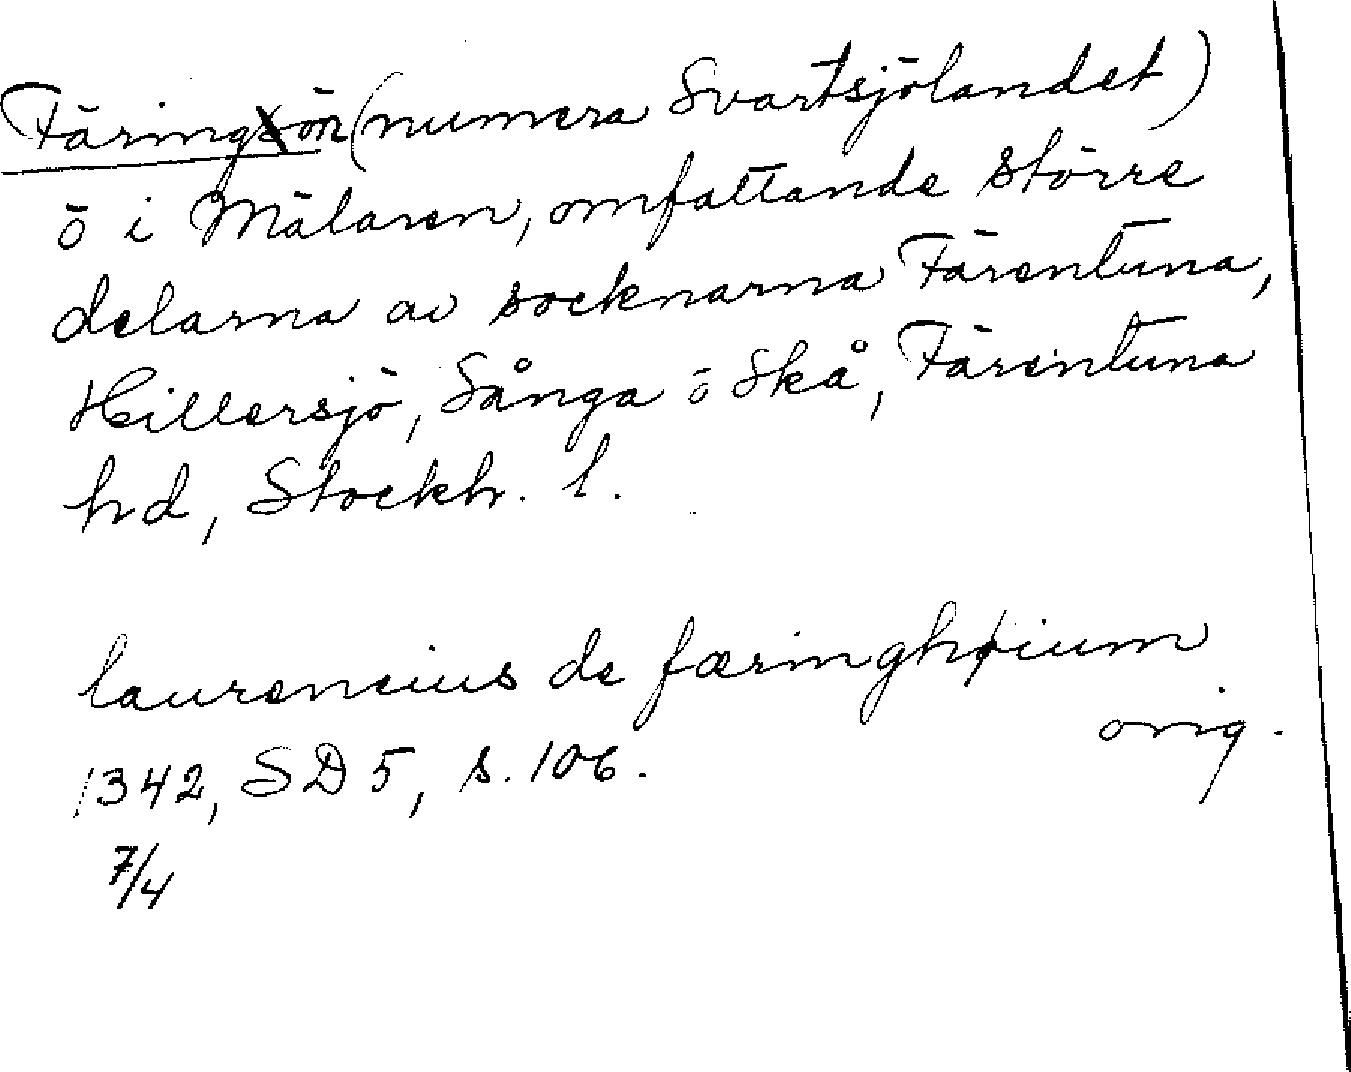 Färingön (numera Svartsjölandet)
ö i Mälaren, omfattande större
delarna av socknarna Färentuna,
Hillersjö, Sånga o Skå, Färentuna
hd, Stockh. l.
laurencius de færinghøium
orig.
1342, SD 5, s. 106.
7/4